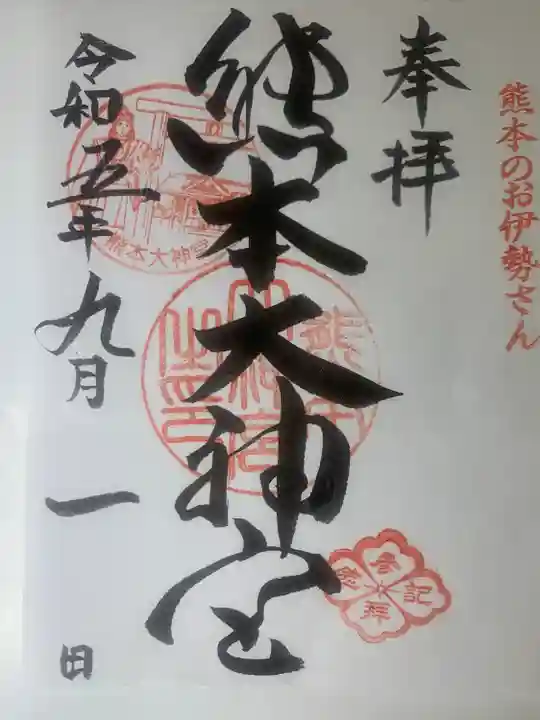 熊本のお伊勢さん
奉拝
熊本大神宮
令和五年九月一日
熊本大神宮
熊本大神宮之印
参拝記念